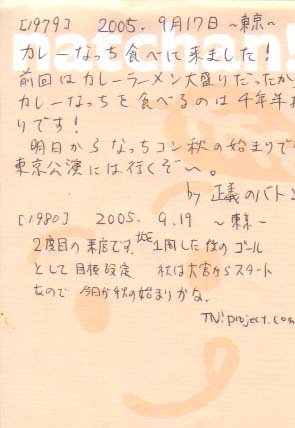 natchan!
[1979] 2005. 9月17日 〜東京〜
カレーなっち食べに来ました!
前回はカレーラーメン大盛りだったか
カレーなっちを食べるのは4年半ぶ
りです!
明日からなっちコン秋の始まりです
東京公演には行くぞ〜。
by 正義のバトン
[1980] 2005. 9.19 〜東京〜
2度目の来店です。 1周した後のゴール
として目標設定 秋は大宮からスタート
なので 今日が秋の始まりかな。
TN!project.com